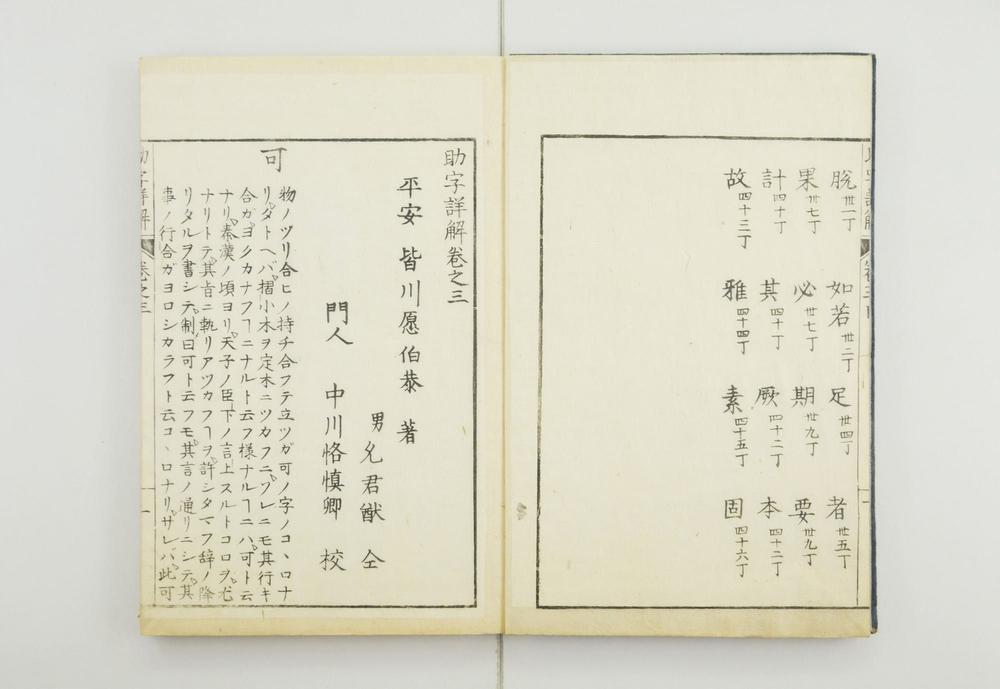 脱 卅一丁 如若 卅二丁 足 卅四丁 者 卅五丁
果 卅七丁 必 卅七丁 期 卅九丁 要 卅九丁
計 四十丁 其 四十丁 厥 四十二丁 本 四十二丁
故 四十三丁 雅 四十四丁 素 四十五丁 固 四十六丁
助字詳解卷之三
平安 皆川愿伯恭 著
男 允君猷 仝
門人 中川恪慎卿 校
可
物ノツリ合ヒノ持チ合フテ立ツガ可ノ字ノコヽロナ
リ タトヘバ 摺小木ヲ定木ニツカフニ ソレニモ其行キ
合ガヨクカナフヿニナルト云フ様ナルヿニハ 可ト云
ナリ 秦漢ノ頃ヨリ 天子ノ臣下ノ言上スルトコロヲ 尤
ナリトテ 其旨ニ軌リアツカフヿヲ 許シタマフ辞ノ降
リタルヲ書シテ 制曰可ト云フモ 其言ノ通リニシテ 其
事ノ行合ガヨロシカラフト云コヽロナリ サレバ 此可
助字詳解
卷之三
一